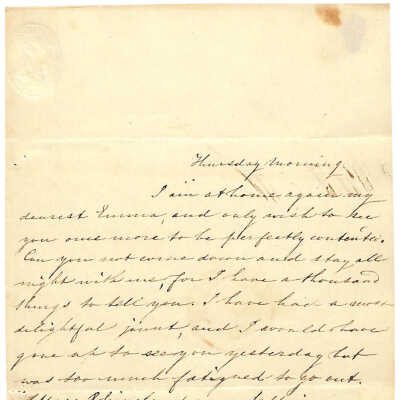 Thursday morning.
I am at home again my
dearest Emma, and only wish to see
you once more to be perfectly contented.
Can you not come down and stay all
night with me, for I have a thousand
things to tell you. I have had a most
delightful jaunt, and I would have
gone up to see you yesterday but
was too much fatigued to go out.